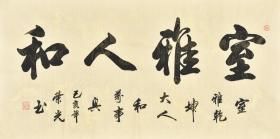 室雅人和
室
雅乾
坤
大人
和
萬事
興
己亥年
荣光
书